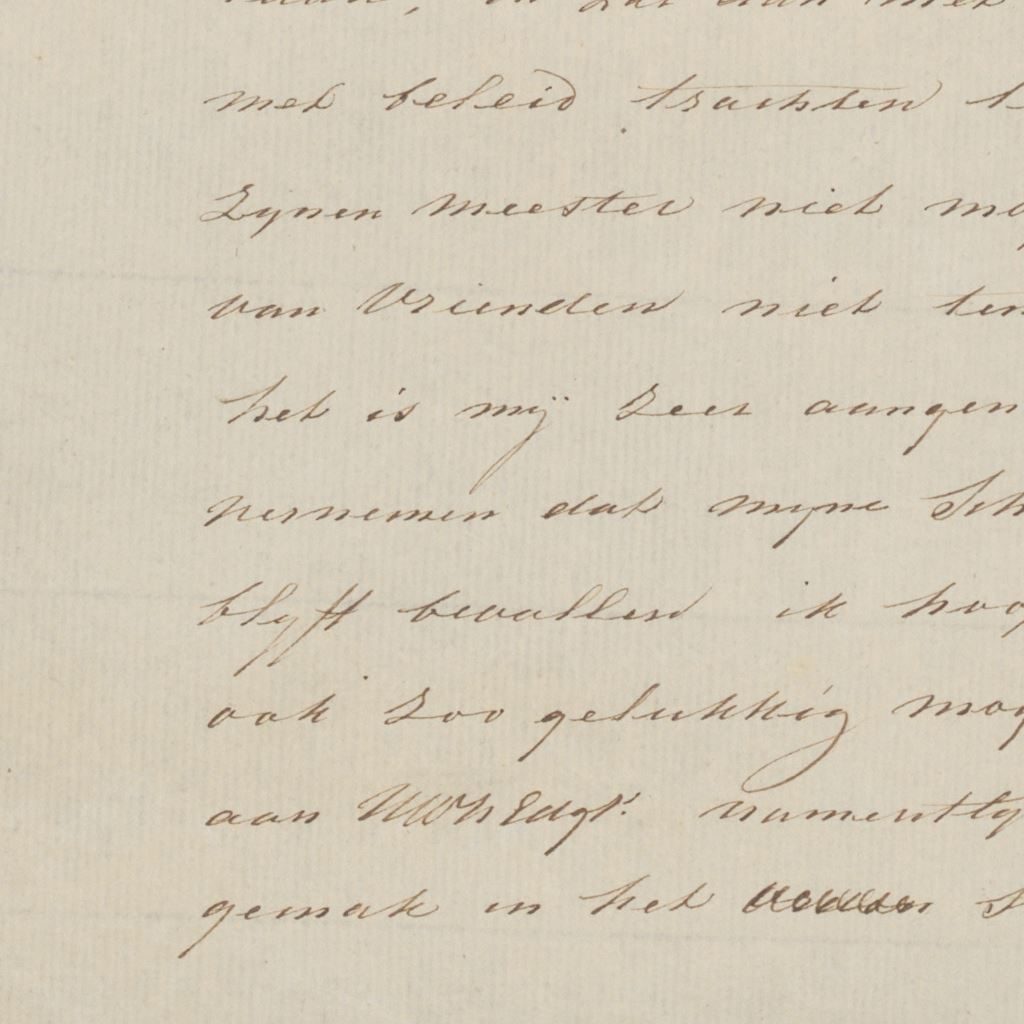 zal dan met
met beleid trachten
Zynen Meester niet
van Vrienden niet
het is mÿ Zeer aangen
vernemen dat myne Sch
blyft bevallen ik
ook Zoo gelukkig mog
aan UWhEdgt.
gemak in het